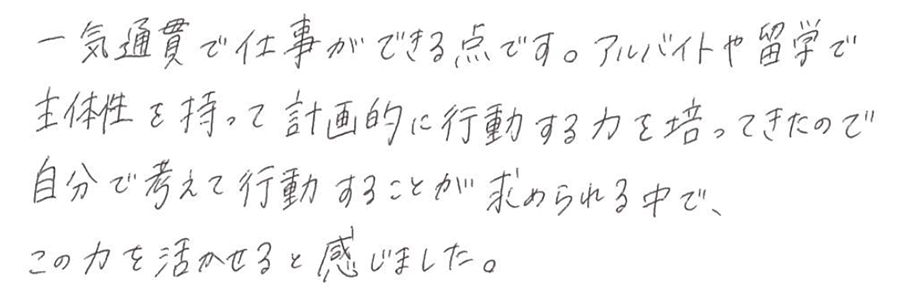 一気通貫で仕事ができる点です。アルバイトや留学で
主体性を持って計画的に行動する力を培ってきたので
自分で考えて行動することが求められる中で、
この力を活かせると感じました。